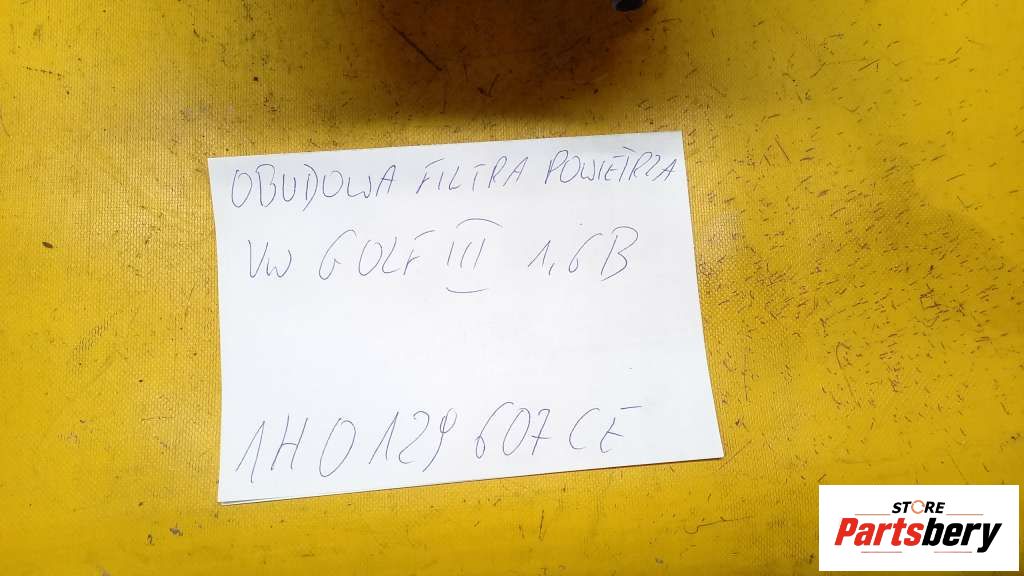 OBUDOWA FILTRA POWIETRZA
VW GOLF III 1,6B
1H0 129 607 CE
STORE
Partsbery